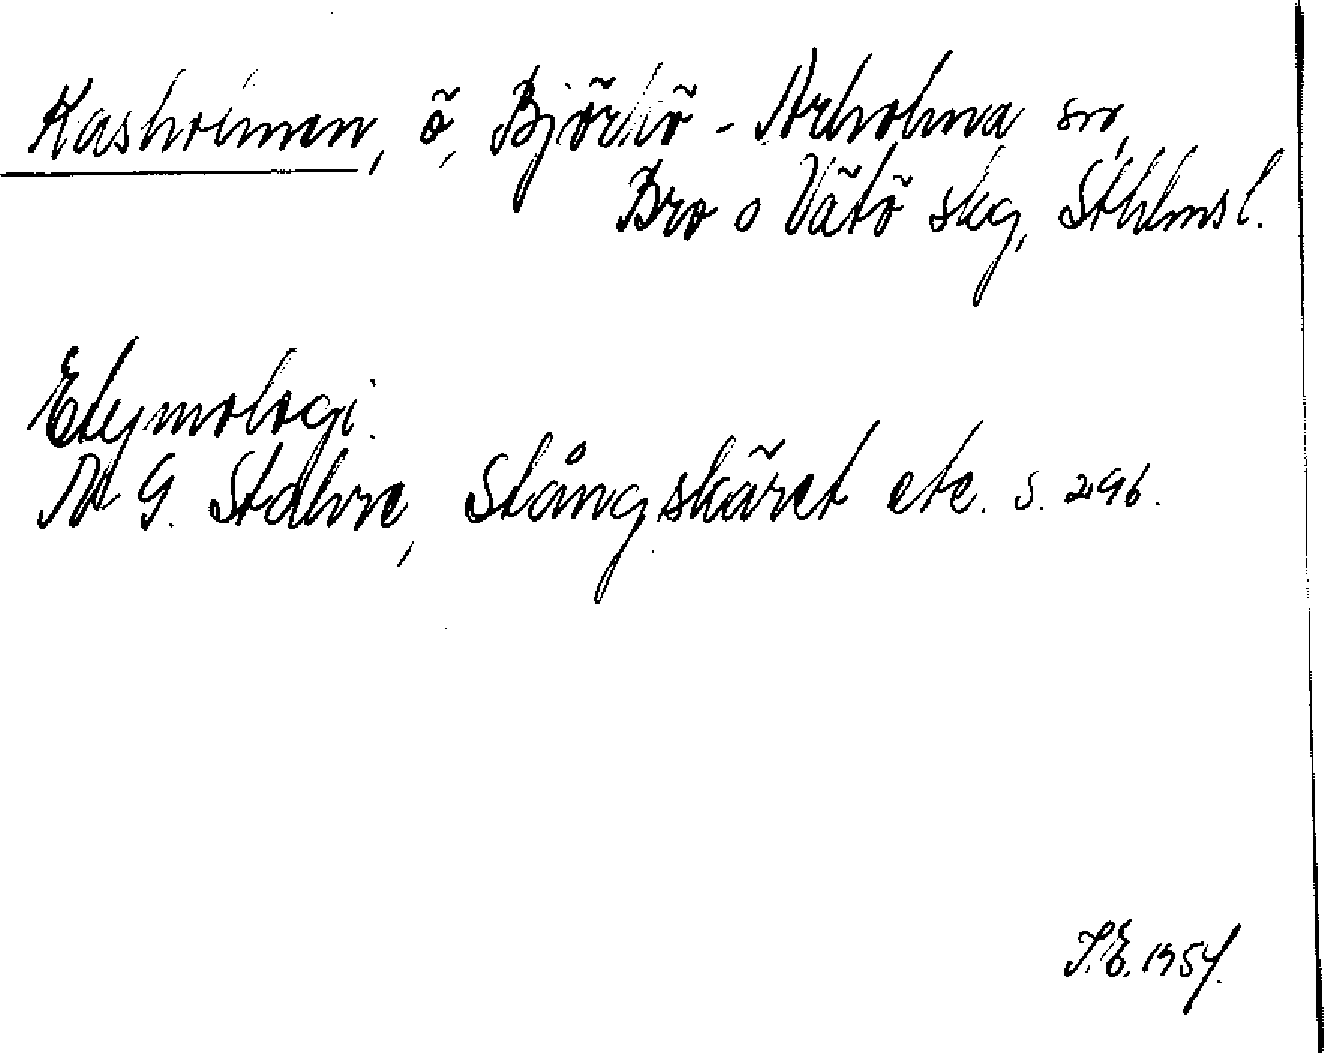 Kasholmen, ö, Björkö-Arholma sn,
Bro o Vätö skg, Sthlms l.
Etymologi.
N G. Stahre, Stångskäret etc. s. 296.
S.E. 1954.